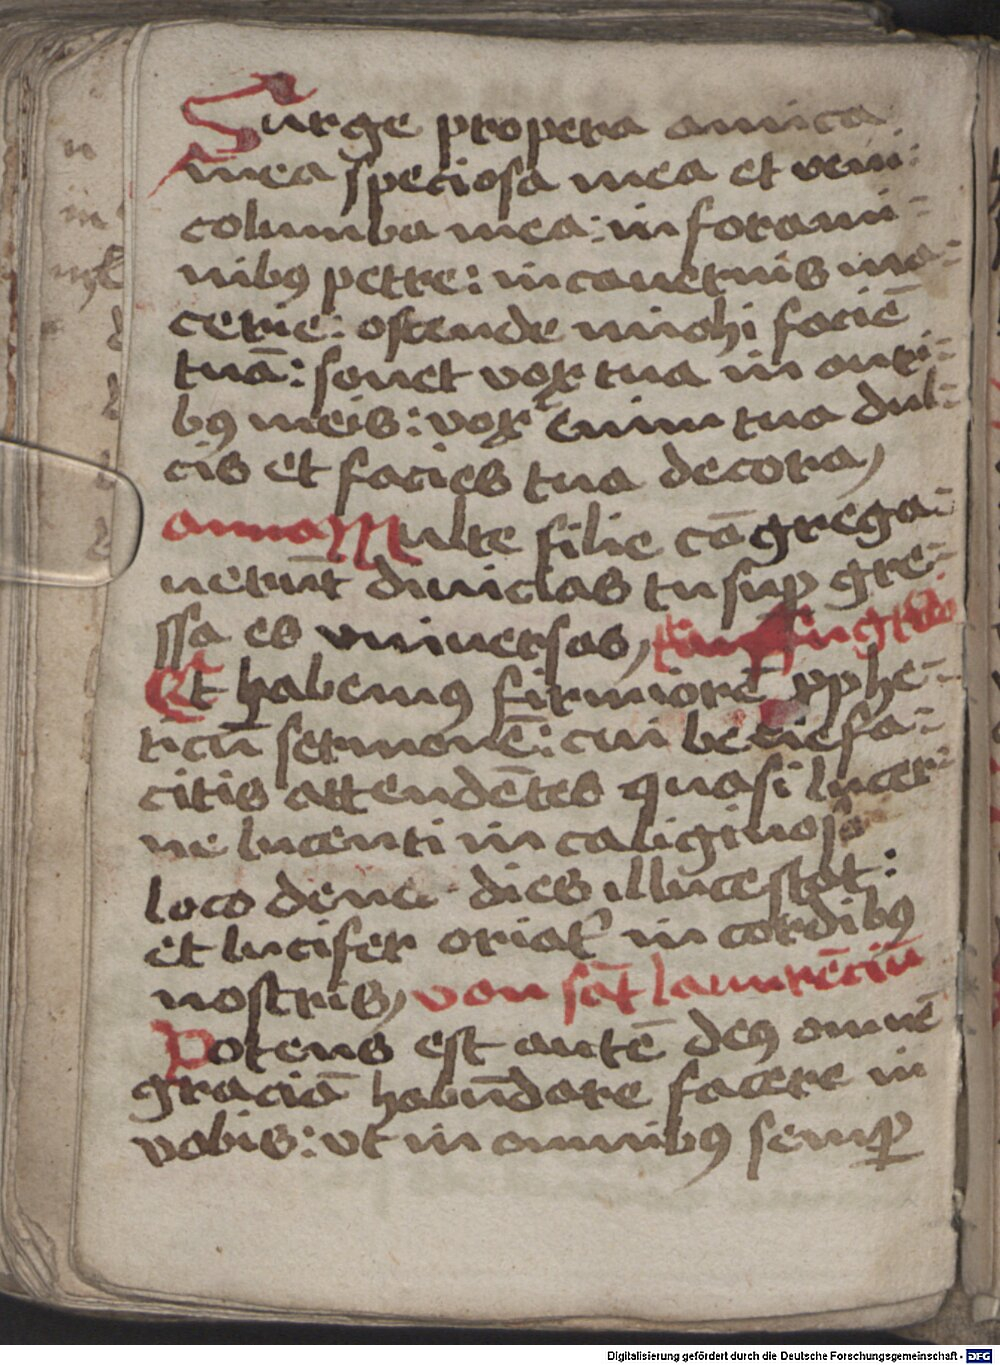 Surge propera amica
mea speciosa mea et veni:
columba mea: in forami-
nibꝯ petre: in cauernis ma-
cerie: ostende michi faciē
tuā: sonet vox tua in auri-
bꝯ meis: vox enim tua dul-
cis et facies tua decora,
anna Multe filie cōgrega-
uerūt diuicias tu suꝑ gre-
ssa es vniuersas,
Et habemꝯ firmiorē pphe-
ticū sermonē: cui bene fa-
citis attendētes quasi lucer-
ne lucenti in caliginoso
loco donec dies illucescat:
et lucifer oriat᷑ in cordibꝯ
nostris, von sāt laurēciū
Potens est autē deꝯ omnē
graciā habūdare facere in
vobis: vt in omnibꝯ semꝑ
Digitalisierung gefördert durch die Deutsche Forschungsgemeinschaft - DFG